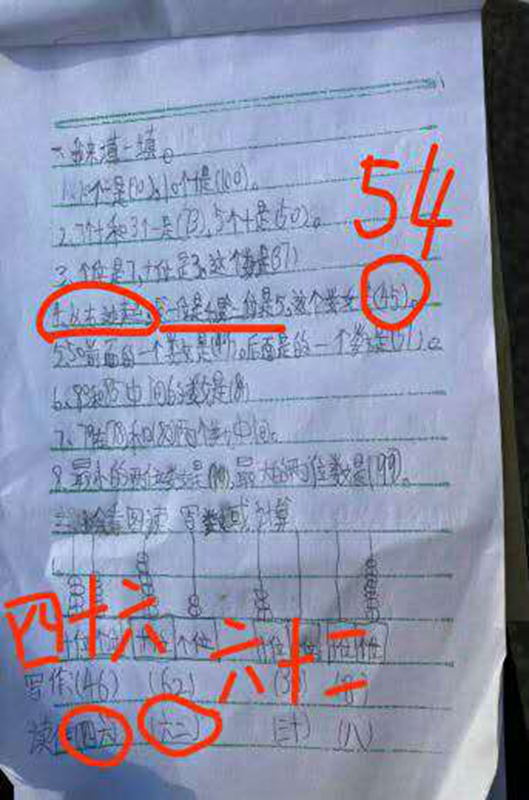 一、我来填一填。
1.10个一是(10),10个十是(100)。
2.7个十和3个一是(73),5个十是(50)。
3.个位是7,十位是3,这个数是(37)
54
4.从右边起,第一位是4,第二位是5,这个数是(45)。
5.50前面的一个数是(49),后面是的一个数是(51)。
6.83和85中间的数是(8)
7.79在(78)和(80)两个数中间。
8.最小的两位数是(10),最大的两位数是(99)。
二、看图读写数
四十六 六十二
十位 个位
写作(46) (62) (30) (8)
读作(四六) (六二) (三十) (八)